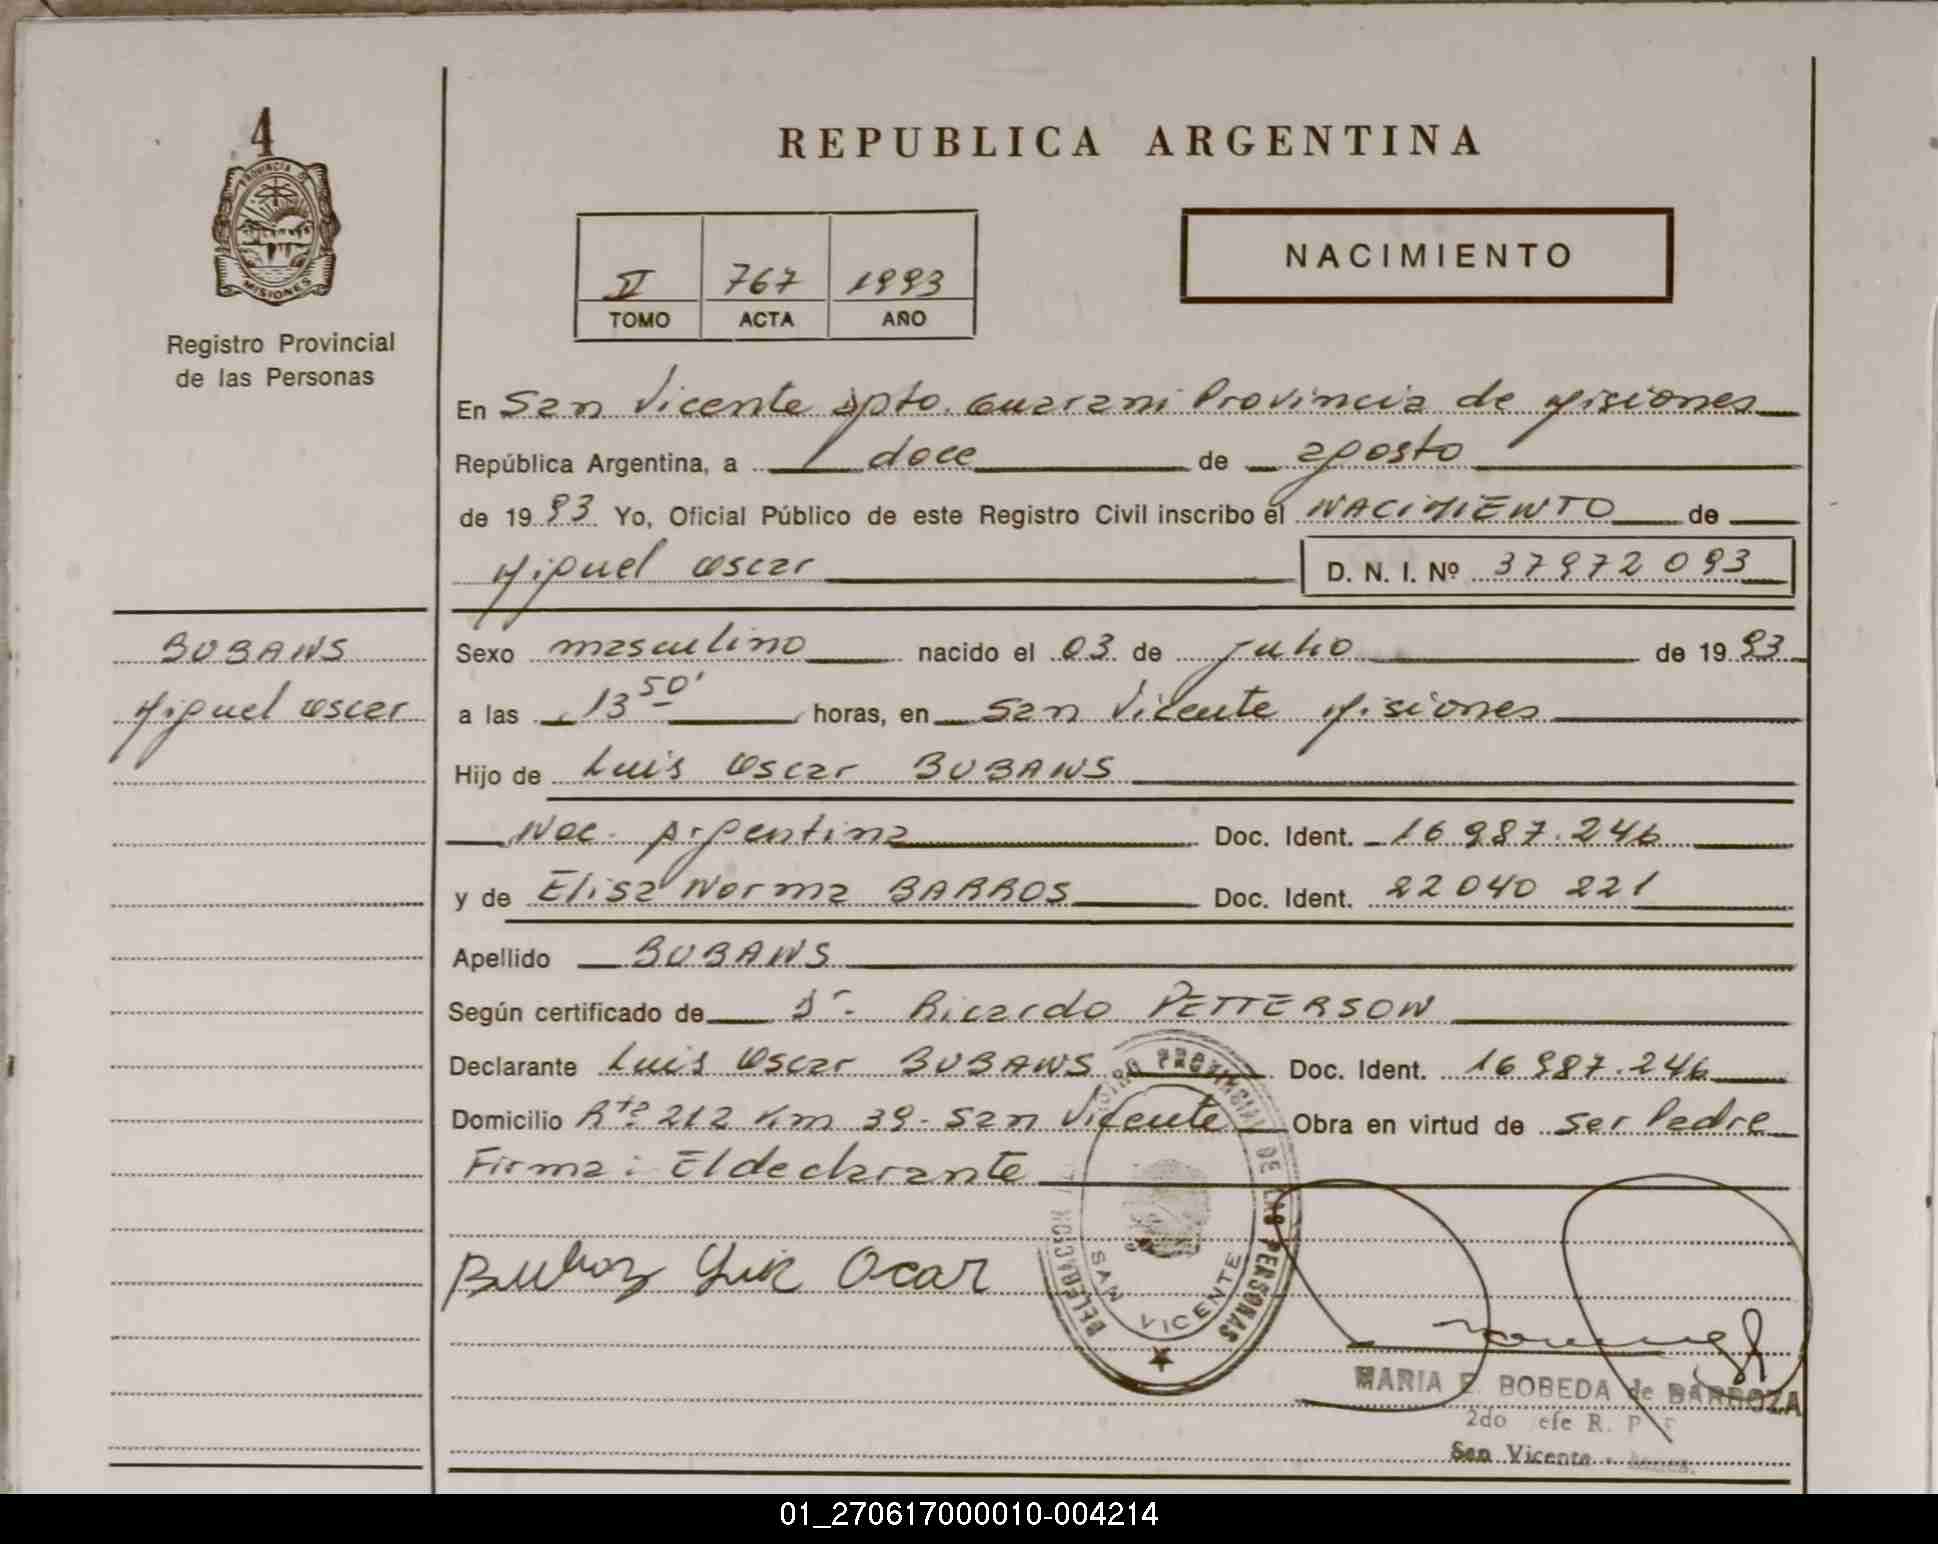 4
PROVINCIA D
MISIONES
Registro Provincial
de las Personas
REPUBLICA ARGENTINA
NACIMIENTO
V 767 1993
TOMO ACTA AÑO
En San Vicente Dpto. Guarani Provincia de Misiones
República Argentina, a doce de agosto
de 19 93 Yo, Oficial Público de este Registro Civil inscribo el NACIMIENTO de
Miguel Oscar D. N. I. Nº 37972093
BUBANS
Miguel Oscar
Sexo masculino nacido el 03 de julio de 19 93
a las 13 50' horas, en San Vicente Misiones
Hijo de Luis Oscar BUBANS
Nac. Argentina Doc. Ident. 16 987.246
y de Elisa Norma BARROS Doc. Ident. 22040 221
Apellido BUBANS
Según certificado de Dr. Ricardo PETTERSON
Declarante Luis Oscar BUBANS Doc. Ident. 16 987.246
Domicilio Rta 212 Km 39 - San Vicente Obra en virtud de ser Padre
Firma: El declarante
Ocar
PROVINCIAL DE LAS PERSONAS
DELEGACION
SAN VICENTE
MARIA E. BOBEDA de BARBOZA
2do efe R. P.
San Vicente
01_270617000010-004214